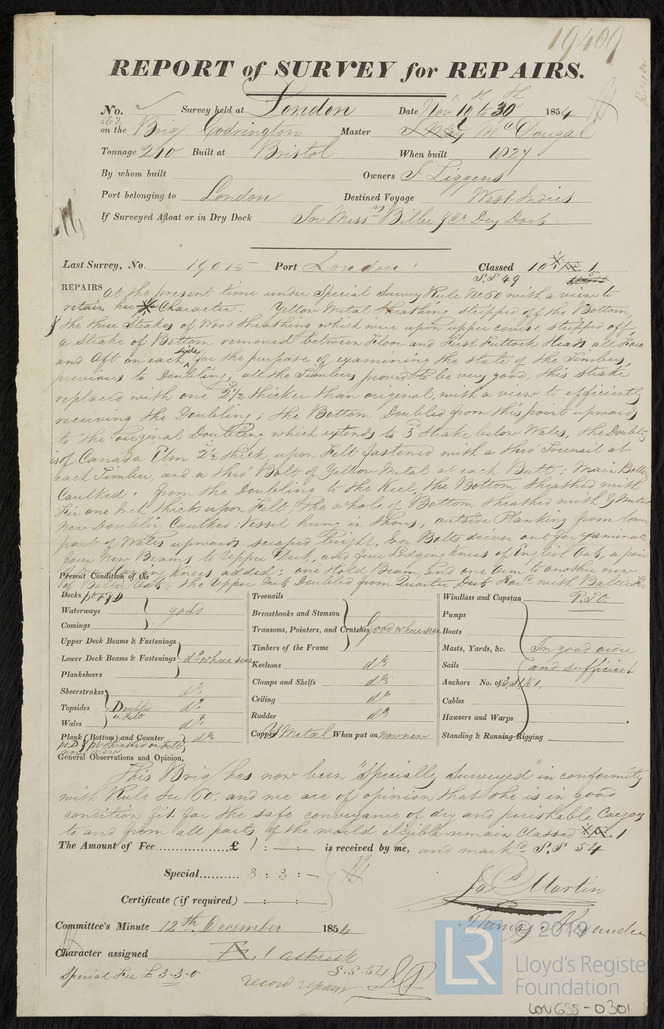 19409
REPORT of SURVEY for REPAIRS.
No. 562 Survey held at London Date Nov 10 to 30th 1854
on the Brig Codrington Master McDougal
Tonnage 210 Built at Bristol When built 1827
By whom built Owners J Liggens
Port belonging to London Destined Voyage West Indies
If Surveyed Afloat or in Dry Dock In Messrs Bilbe & Co Dry Dock
Last Survey, No. 19015 Port London Classed 10 1
S.S 49
REPAIRS At the present time under Special Survey Rule No 60 with a view to
retain her Character. Yellow Metal Sheathing stripped off the Bottom,
the three Strakes of Wood Sheathing which were upon upper course stripped off,
a Strake of Bottom removed between Floor and First Futtock Heads all Fore
and Aft on each side for the purpose of examining the state of the Timbers,
previous to Doubling, all the Timbers proved to be very good, this strake
replaced with one 2½ thicker than original, with a view to efficiently
receiving the Doubling; the Bottom Doubled from this point upwards
to the original Doubling which extends to 3 Strake below Wales, the Doubling
is of Canada Elm 2½ thick, upon Felt fastened with a thro Treenail at
each Timber, and a thro Bolt of Yellow Metal at each Butt; Main Bottom
Caulked; from the Doubling to the Keel, the Bottom Sheathed with
Fir one Inch thick upon Felt, the whole of Bottom Sheathed with Y Metal
New Doubling Caulked: Vessel hung in Shores, outside Planking from lower
part of Wales upwards scraped bright, Bolts driven out for examination
four New Beams to Upper Deck, and five Lodging knees of English Oak, a pair
knees added; one Hold Beam, and one Arm to another new
of Oak. The Upper Deck Doubled from Quarter Deck For'd with Baltic Fir
Present Condition of the
Decks
Waterways good
Comings
Upper Deck Beams & Fastenings
Lower Deck Beams & Fastenings do where seen
Planksheers
Sheerstrakes do
Topsides Doubled on Felt do
Wales
Plank (Bottom) and Counter do
Treenails
Breasthooks and Stemson
Transoms, Pointers, and Crutches Good where seen
Timbers of the Frame
Keelsons do
Clamps and Shelfs do
Ceiling do
Rudder do
Copper Y Metal When put on now new
Windlass and Capstan
Pumps
Boats
Masts, Yards, &c. In good order
Sails and sufficient
Anchors No. of 3, 1 & 1
Cables
Hawsers and Warps
Standing & Running Rigging
General Observations and Opinion,
This Brig has now been "Specially Surveyed" in conformity
with Rule No 60, and we are of opinion that she is in good
condition fit for the safe conveyance of dry and perishable Cargoes
to and from all parts of the world eligible remain Classed 1
The Amount of Fee £ 1 : - : - is received by me, and mark'd S.S 54
Special 3 : 3 : -
Certificate (if required) - : - : -
Jas P Martin
Thomas Alexander
Committee's Minute 12th December 1854
Character assigned 1 asterisk
S.S. 54
Special Fee £ 3-3-0
record repairs
LR
© 2019
Lloyd's Register
Foundation
LON635-0301